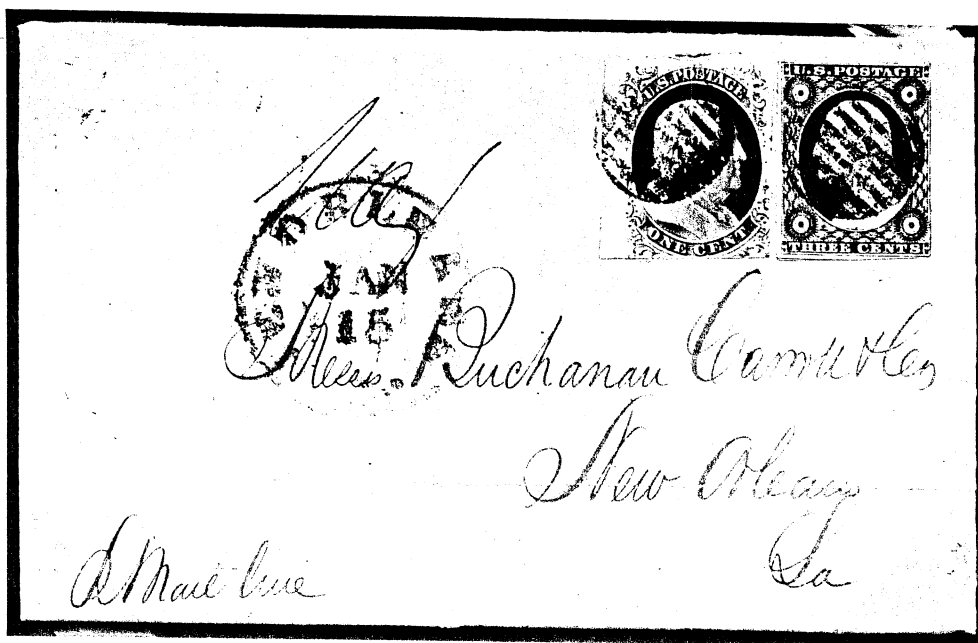 U.S. POSTAGE
ONE CENT
U.S. POSTAGE
THREE CENTS
JAN
15
Messrs. Buchanan Carroll & Co
New Orleans
La
Mail line